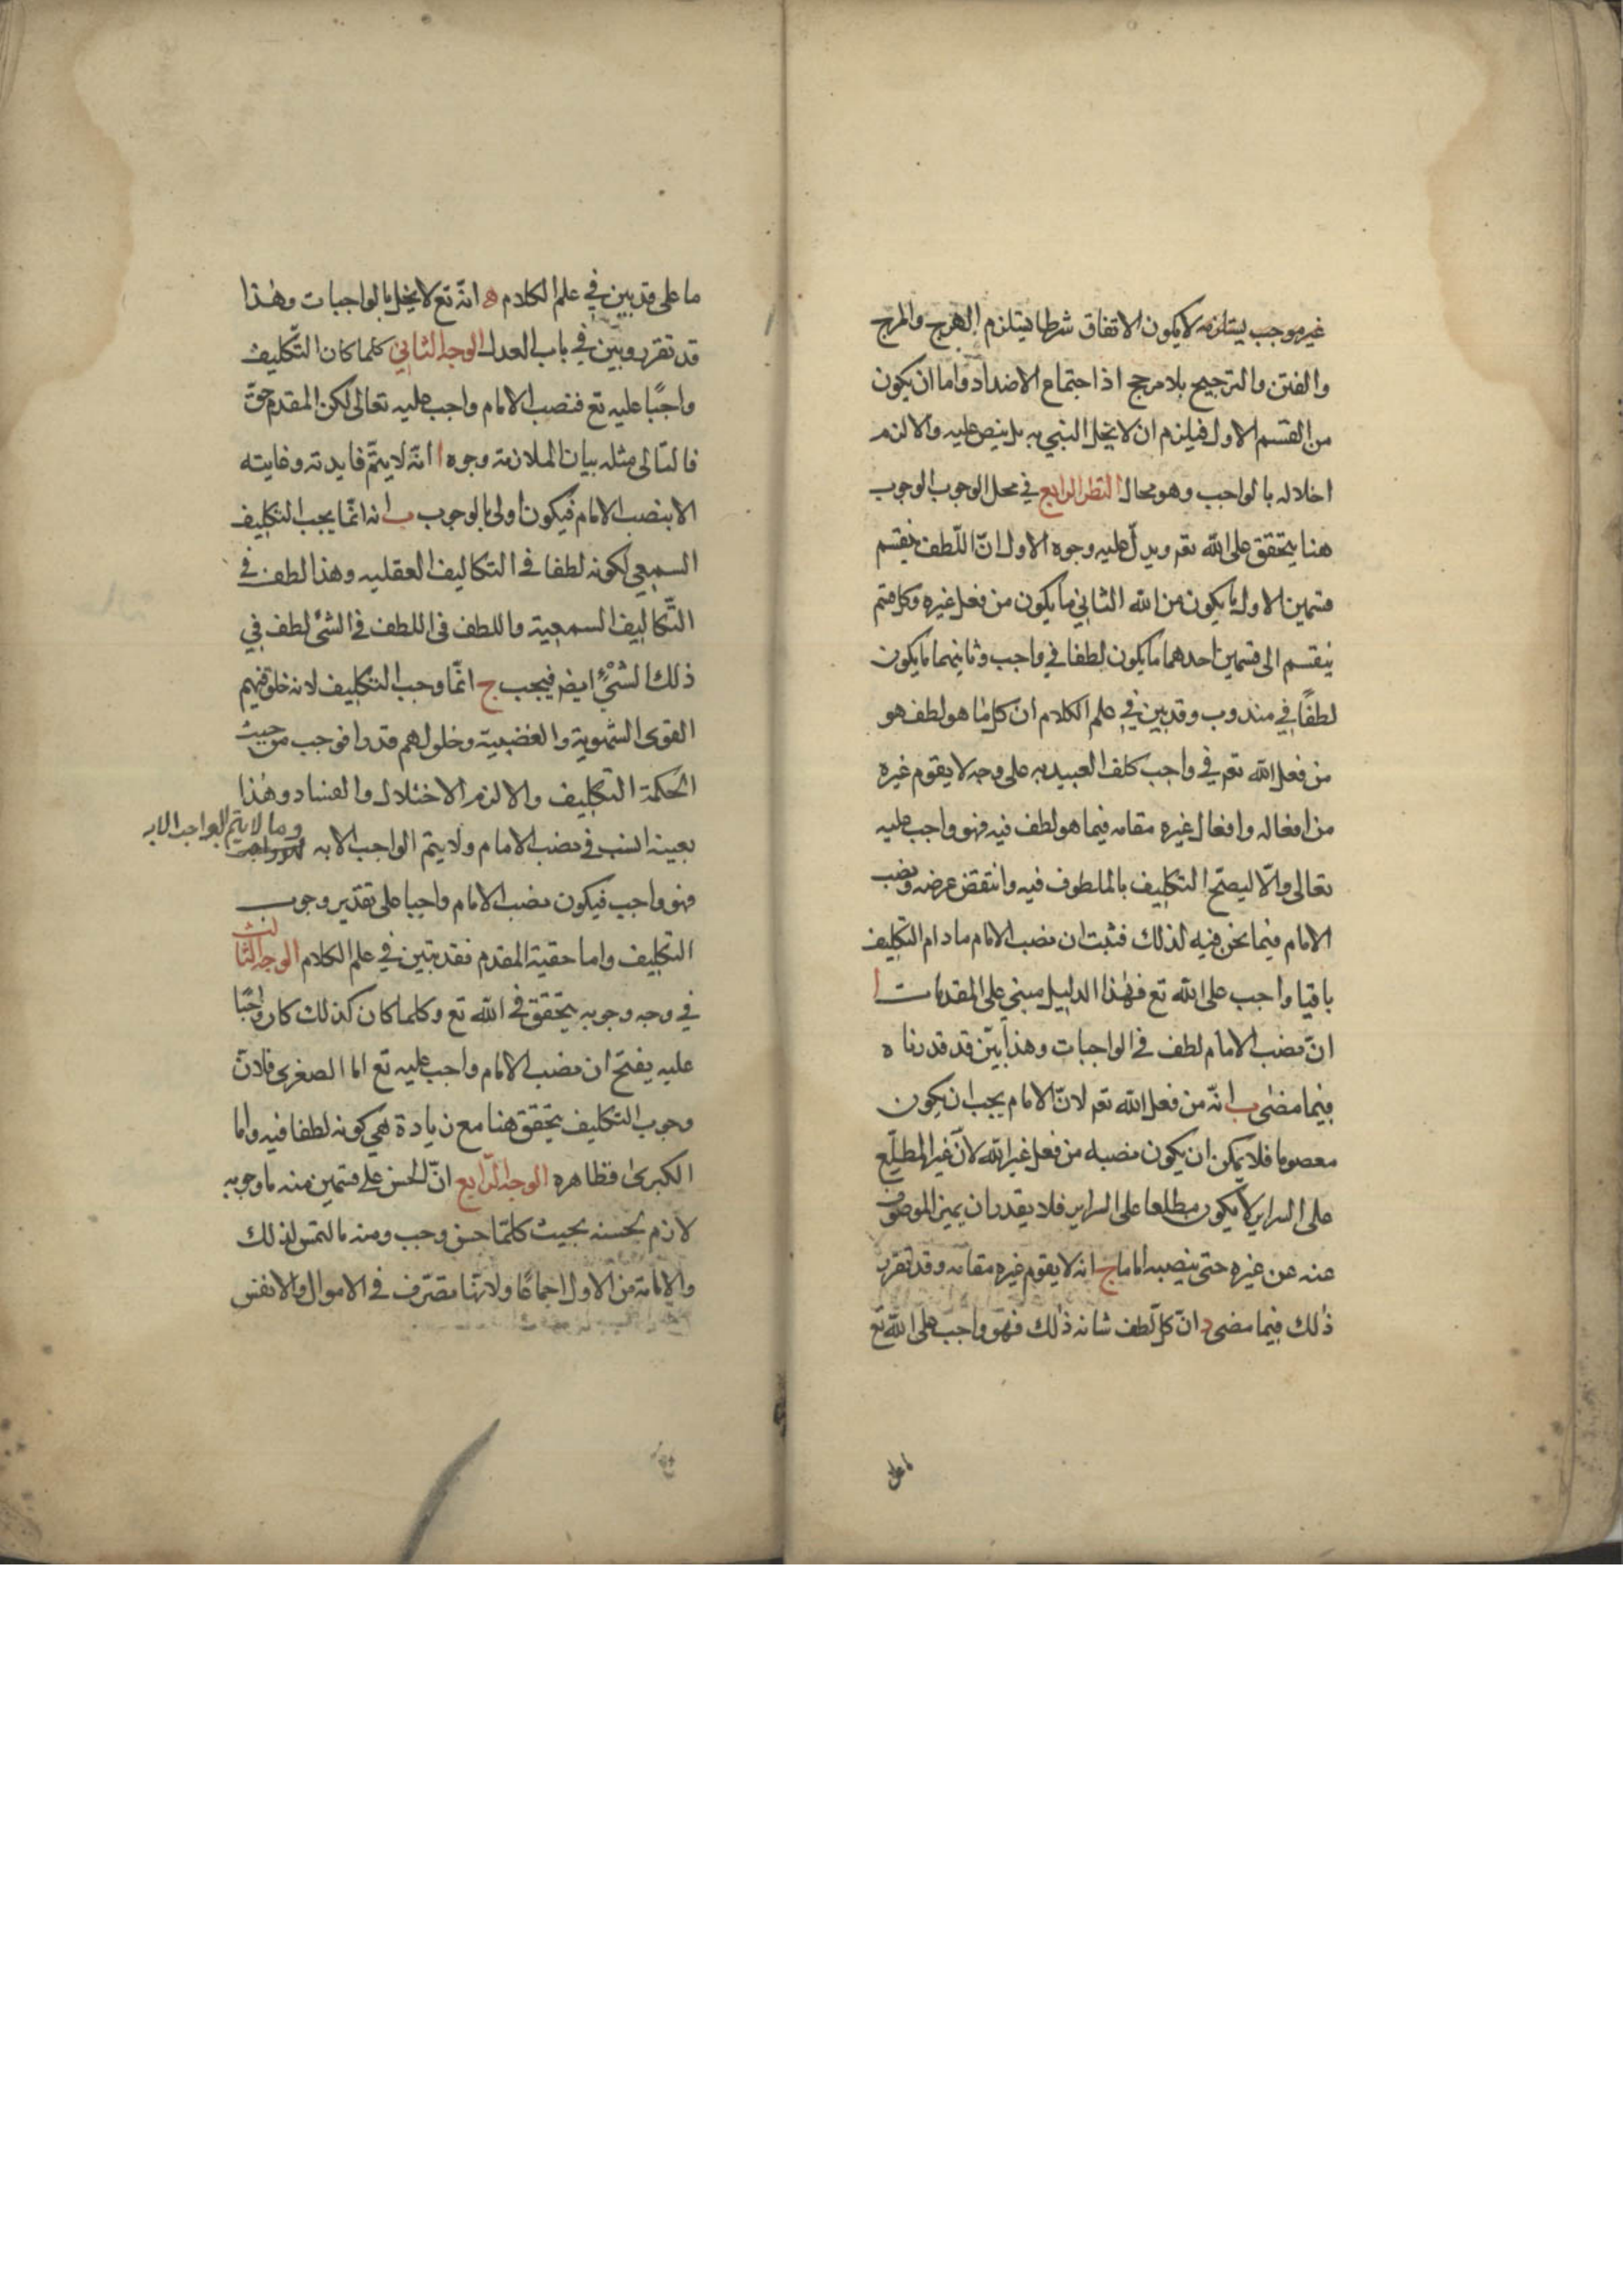 غيرموجب يستلزمه لا يكون الاتفاق شرطا فيستلزم الهرج والمرج
والفتن والترجيح بلا مرجح اذا اجتماع الاضداد واما ان يكون
من القسم الاول فيلزم ان لا يخل النبي به بل ينص عليه والا لزم
اخلاله بالواجب وهو محال النظر الرابع في محل الوجوب الوجوب
هنا يتحقق على الله تعم ويدل عليه وجوه الاول انّ اللّطف ينقسم
قسمين الاول ما يكون من الله الثاني ما يكون من فعل غيره وكل قسم
ينقسم الى قسمين احدهما ما يكون لطفا في واجب وثانيهما ما يكون
لطفًا في مندوب وقد بين في علم الكلام ان كل ما هو لطف هو
من فعل الله تعم في واجب كلف العبيد به على وجه لا يقوم غيره
من افعاله وافعال غيره مقامه فيما هو لطف فيه فهو واجب عليه
تعالى والّا ليصتح التكليف بالملطوف فيه وانتقض غرضه ونصب
الامام فيما نحن فيه لذلك فثبت ان نصب الامام ما دام التكليف
باقيا واجب على الله تع فهٰذا الدليل مبني على المقدمات ا
انّ نصب الامام لطف في الواجبات وهذا بيّن قد قدرناه
فيما مضى ب انّه من فعل الله تعم لانّ الامام يجب ان يكون
معصوما فلا يمكن ان يكون نصبه من فعل غير الله لانّ غير المطلّع
على السراير لا يكون مطلعا على السراير فلا يقدر ان يميز الموصوف
عنه عن غيره حتى ينصبه اماما ج انه لا يقوم غيره مقامه وقد تقرر
ذٰلك فيما مضى د انّ كل لطف شانه ذٰلك فهو واجب على الله تع
ما على
ما على قد بين في علم الكلام ه انّه تع لا يخل بالواجبات وهٰذا
قد تقرر وبيّن في باب العدل الوجه الثاني كلما كان التّكليف
واجبًا عليه تع فنصب الامام واجب عليه تعالى لكن المقدم حقّ
فالتالى مثله بيان الملازمة وجوه ا انّه لا يتمّ فايدته وغايته
الا بنصب الامام فيكون اولى بالوجوب ب انه انّما يجب التكليف
السمعي لكونه لطفا في التكاليف العقليه وهذا لطف في
التّكاليف السمعية واللطف في اللطف في الشئ لطف في
ذلك الشئ ايضم فيجب ج انّما وجب التكليف لانه خلق فيهم
القوى الشهوية والغضبية وخلولهم قدرا فوجب من حيث
الحكمة التكليف والا لزم الاختلال والفساد وهٰذا
بعينه السبب في نصب الامام ولا يتم الواجب الا به
وما لا يتم الواجب الا به
فهو واجب فيكون نصب الامام واجبا على تقدير وجوب
التكليف واما حقية المقدم فقد تبين في علم الكلام الوجه الثالث
في وجه وجوبه يتحقق في الله تع وكلما كان كذلك كان واجبًا
عليه يفتح ان نصب الامام واجب عليه تع اما الصغرى فلانّ
وجوب التكليف يتحقق هنا مع زيادة هي كونه لطفا فيه واما
الكبرى فظاهره الوجه الرّابع انّ الحسن على قسمين منه ما وجوبه
لازم لحسنه بحيث كلمّا حسن وجب ومنه ما ليس لذلك
والامامة من الاول اجماعًا ولانها متصّرف في الاموال والانفس